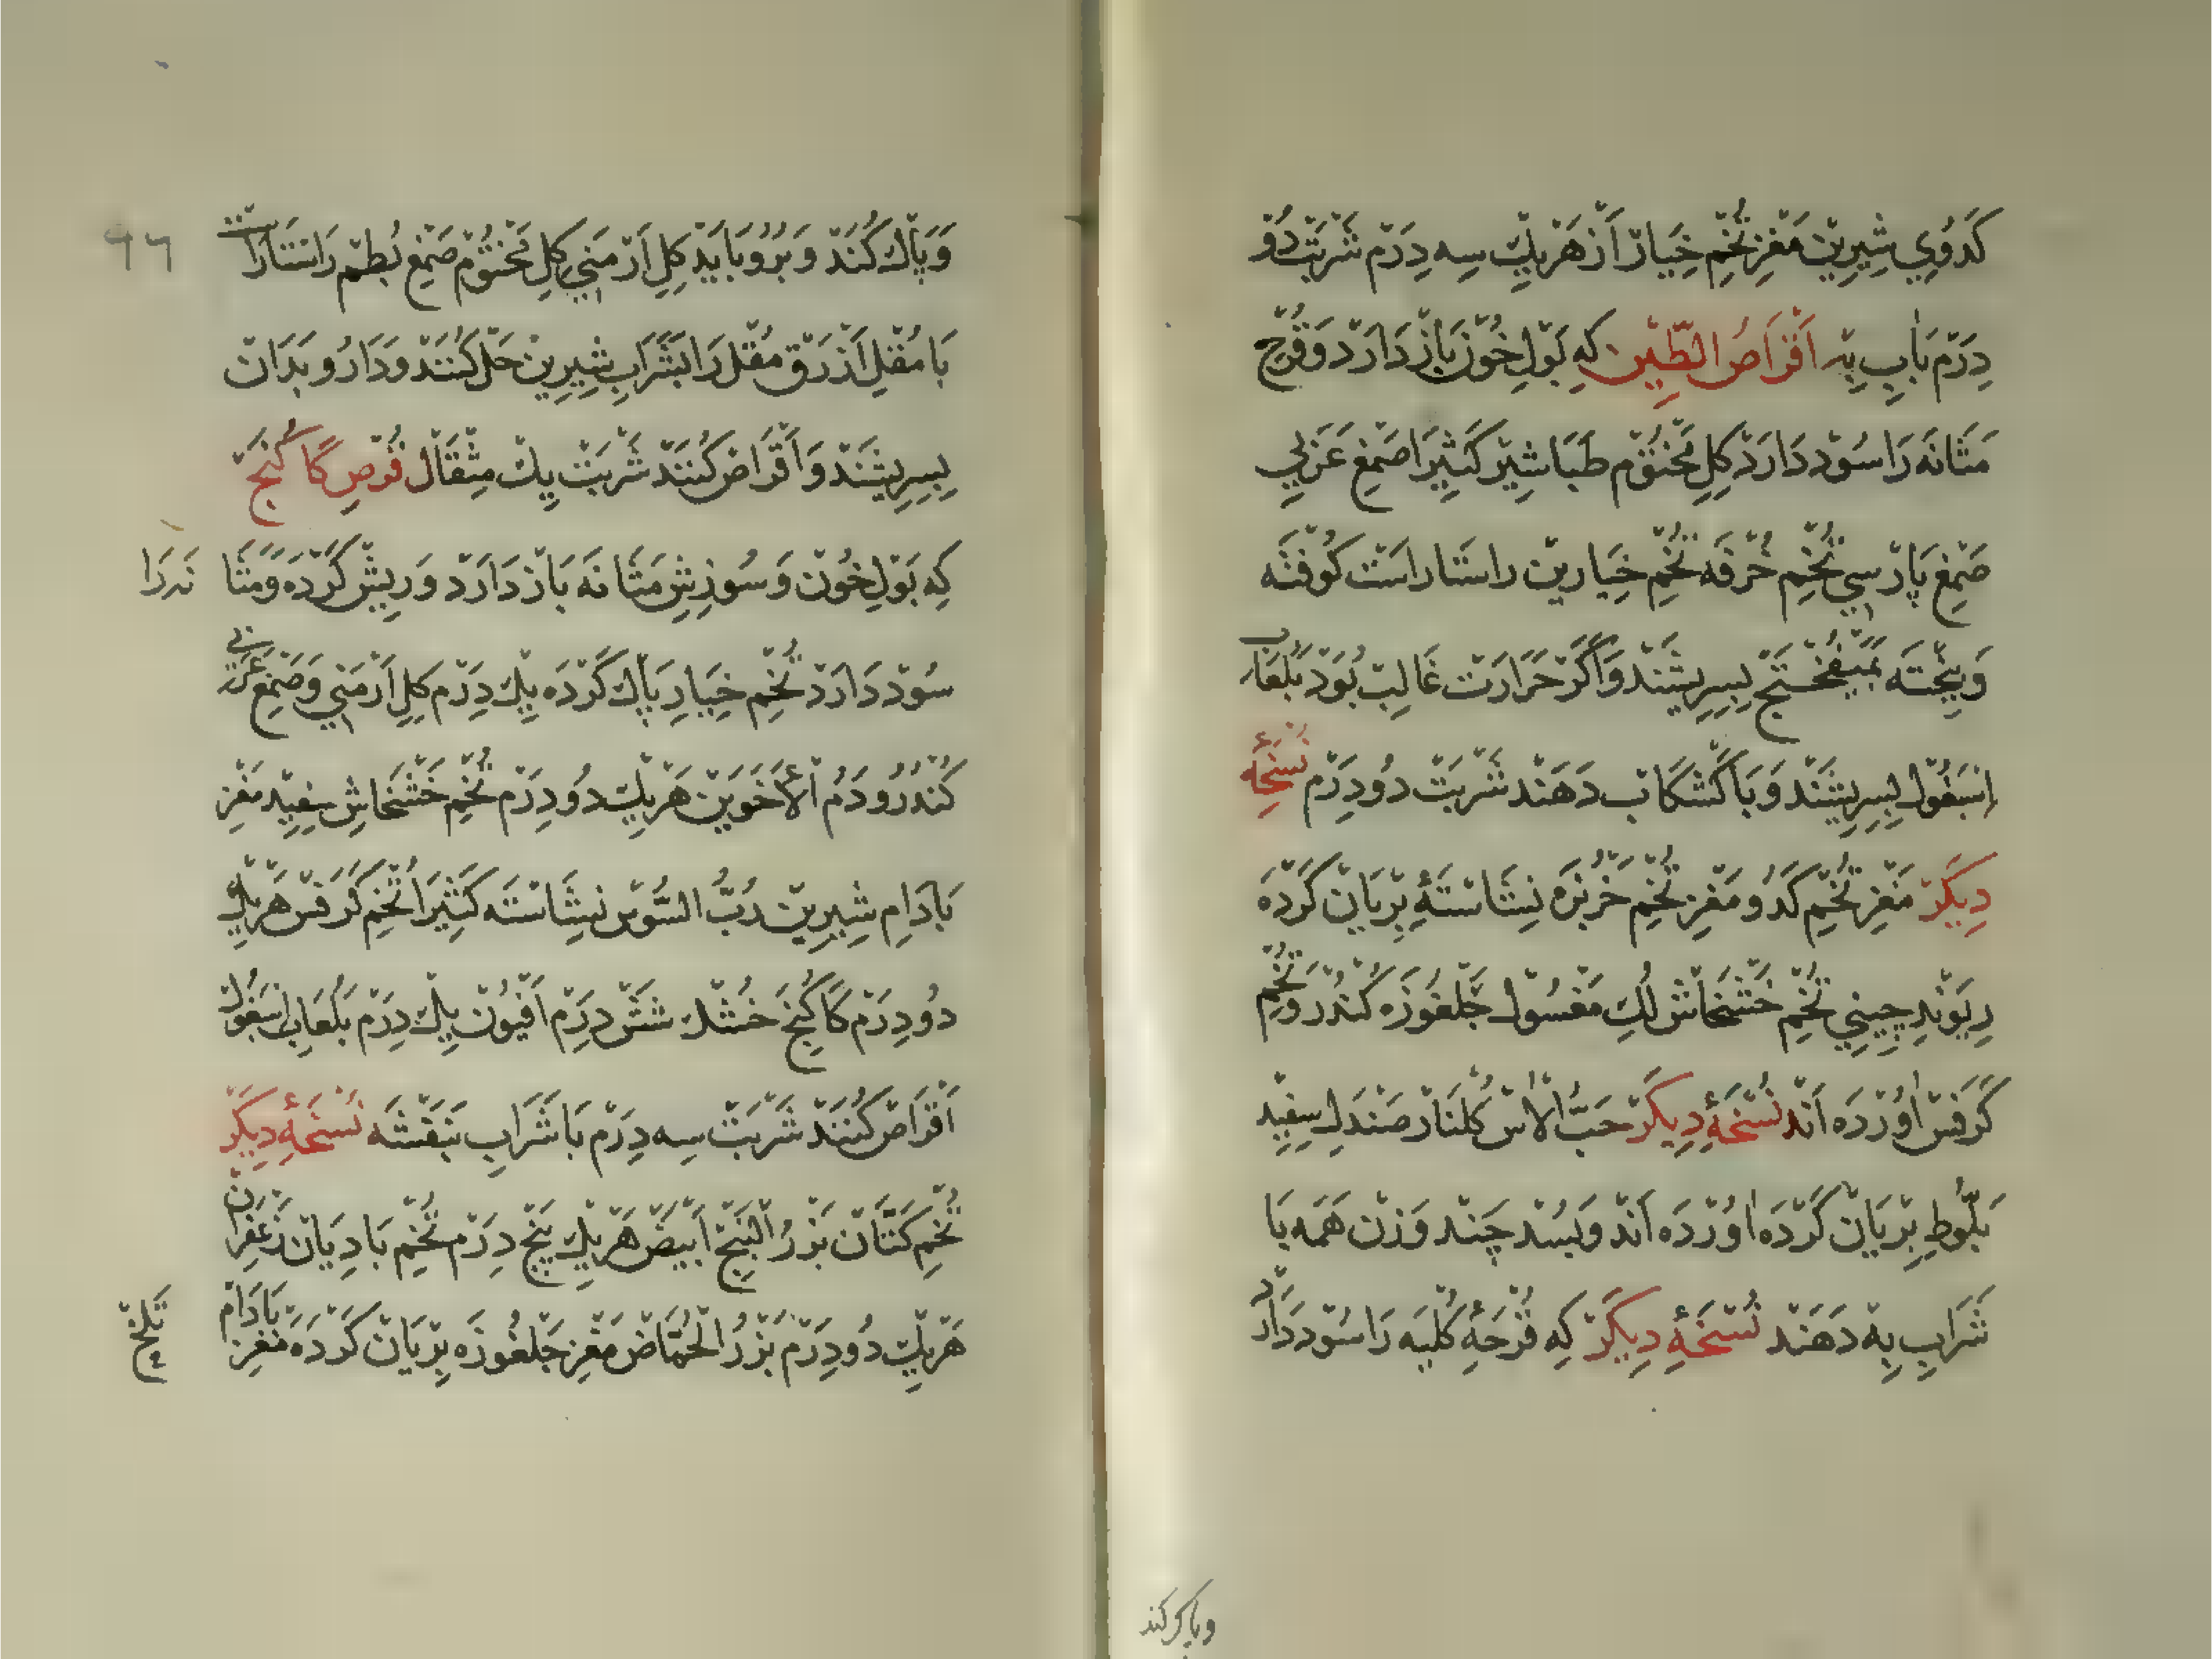 كَدوُي شِيرِين مَغزِ تُخمِ خِيار اَز هَر يِك سِه دِرَم شَربَت دُو
دِرَم بَابِ بِه اَقراصُ الطِّين كِه بَولِ خُون بَاز دَارَد وَ قُرحِ
مَثَانَه رَا سُود دَارَد كِلِ مَختُوم طَبَاشِير كَثِيرَا صَمغِ عَرَبي
صَمغِ پَارسِي تُخمِ خُرفَه تُخمِ خِيارين راستاراست كُوفتَه
وَ بِيختَه بَمَيفُختَج بِسِرِيشَند وَ اَكَر حَرَارَت غَالِب بُوَد بَلُعَابِ
اِسبَغُول بِسِرِيشَند وَ بَا كَشكَاب دَهَند شَربَت دُو دِرَم نُسخَهٔ
دِيكَر مَغزِ تُخمِ كَدُو مَغزِ تُخمِ خَربُزَه نِشَاستَهٔ بِريَان كَردَه
رِيوَندِ چِينِي تُخمِ خَشخَاش لُكِ مَغسُول جَلغُوزَه كُندُر وَ تُخمِ
كَرَفس اوُردَه اَند نُسخَهٔ دِيكَر حَبُّ الاٰس كُلنَار صَندَلِ سِفِيد
بَلُّوطِ بِريَان كَردَه اوُردَه اَند وَ بُسَد چَند وَزن هَمَه بَا
شَرَابِ بِه دَهَند نُسخَهٔ دِيكَر كِه قُرحَهٔ كُليَه رَا سُود دَارَد
وپاک کنند
۹۶
وَ پَاك كُنَند وَ بَرُويَانَد كِلِ اَرمَني كِلِ مَختُوم صَمغِ بُطم رَاستَارَاست
بَا مُقلِ اَزرَق مُقل رَا بَشَرَابِ شِيرِين حَل كُنَند وَ دَارُو بَدَان
بِسِرِيشَند وَ اَقرَاص كُنَند شَربَت يِك مِثقَال قُرصِ كَاكَنج
كِه بَولِ خُون وَ سُوزِشِ مَثَانَه بَاز دَارَد وَ رِيش كُردَه وَ مَثَا نَه رَا
سُود دَارَد تُخمِ خِيَارِ پَاك كَردَه يِك دِرَم كِلِ اَرمَني وَ صَمغِ عَرَبي
كُندُر وَ دَمُ الأَخَوَين هَر يِك دُو دِرَم تُخمِ خَشخَاشِ سِفِيد مَغزِ
بَادَامِ شِيرِين رُبُّ السُّوس نِشَاستَه كَثِيرَا تُخمِ كَرَفس هَر يِك
دُو دِرَم كَاكَنجِ خُشك شَش دِرَم اَفيُون يِك دِرَم بَلُعَابِ اِسبَغُول
اَقرَاص كُنَند شَربَت سِه دِرَم بَا شَرَابِ بَنَفشَه نُسخَهٔ دِيكَر
تُخمِ كَتَّان بَزرُ البَنجِ اَبيَض هَر يِك پَنج دِرَم تُخمِ بَادِيَان زَعفَرَان
هَر يِك دُو دِرَم بَزرُ الحُمَّاض مَغزِ جَلغُوزَه بِريَان كَردَه مَغزِ بَادَامِ تَلخ